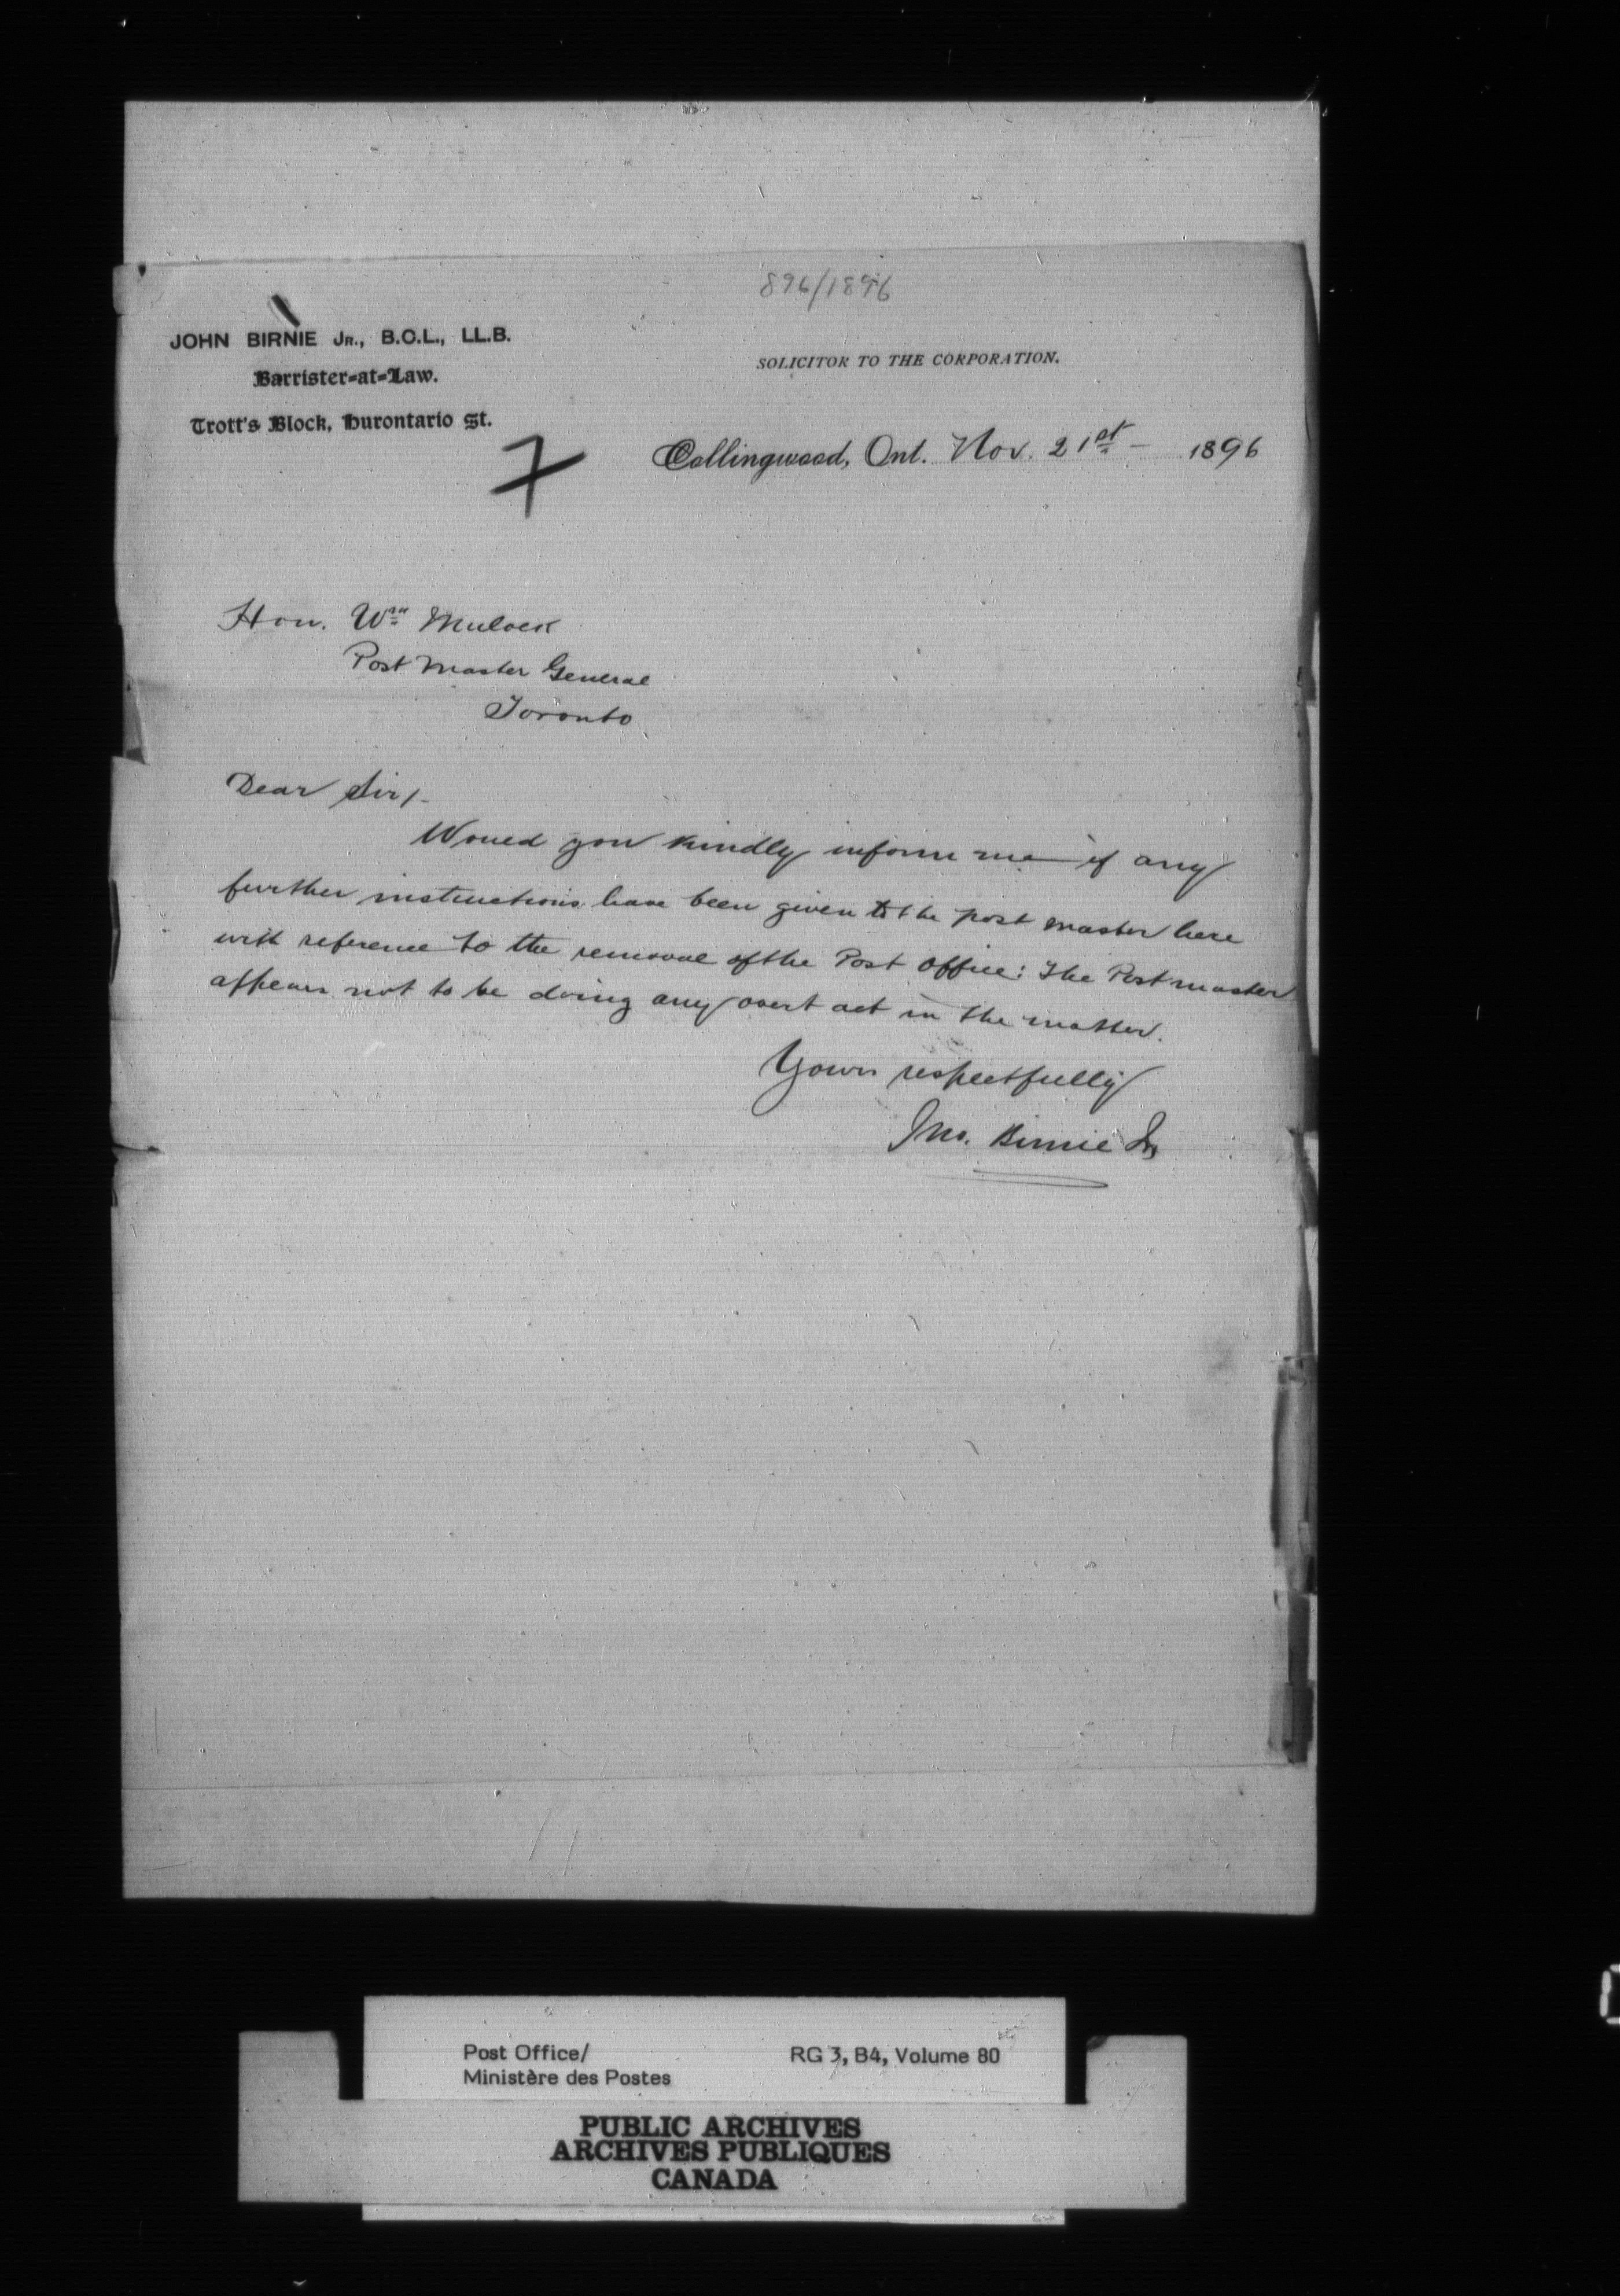 896/1896
JOHN BIRNIE JR., B.C.L., LL.B.
Barrister-at-Law.
Trott's Block, Hurontario St.
SOLICITOR TO THE CORPORATION.
7
Collingwood, Ont. Nov. 21st — 1896
Hon. Wm Mulock
Post Master General
Toronto
Dear Sir/-
Would you kindly inform me if any
further instructions have been given to the post master here
with reference to the removal of the Post Office: The Postmaster
appears not to be doing any overt act in the matter.
Yours respectfully
Jno. Birnie Jr
Post Office/
Ministère des Postes
RG 3, B4, Volume 80
PUBLIC ARCHIVES
ARCHIVES PUBLIQUES
CANADA